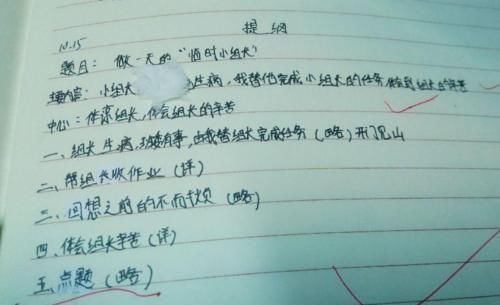 提纲
10.15
题目：做一天的“临时小组长”
主要内容：小组长 生病，我替他完成小组长的任务，体会到组长的辛苦
中心：体谅组长，体会组长的辛苦
一、组长生病， 有事，由我替组长完成任务（略）开门见山
二、帮组长收作业（详）
三、回想之前的不耐烦（略）
四、体会组长辛苦（详）
五、点题（略）